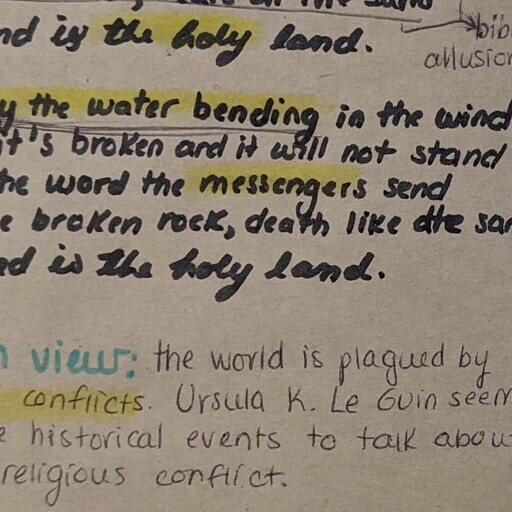 nd is the holy land.
bib
allusion
y the water bending in the wind
it's broken and it will not stand
he word the messengers send
e broken rock, death like the sa
ed is the holy land.
n view: the world is plagued by
conflicts. Ursula K. Le Guin seem
e historical events to talk abou
religious conflict.